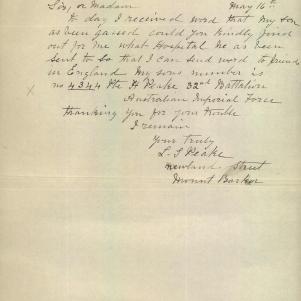 Sir, or Madam May 16th
To day I received word that My son
as been gassed could you kindly find
out for me what Hospital he as been
sent to so that I can send word to friends
in England. My sons number is
x no 4344 Pte H Peake 32nd Battalion
Australian Imperial Force
thanking you for your trouble
I remain
Yours truly
L. S Peake
Newland Street
Mount Barker